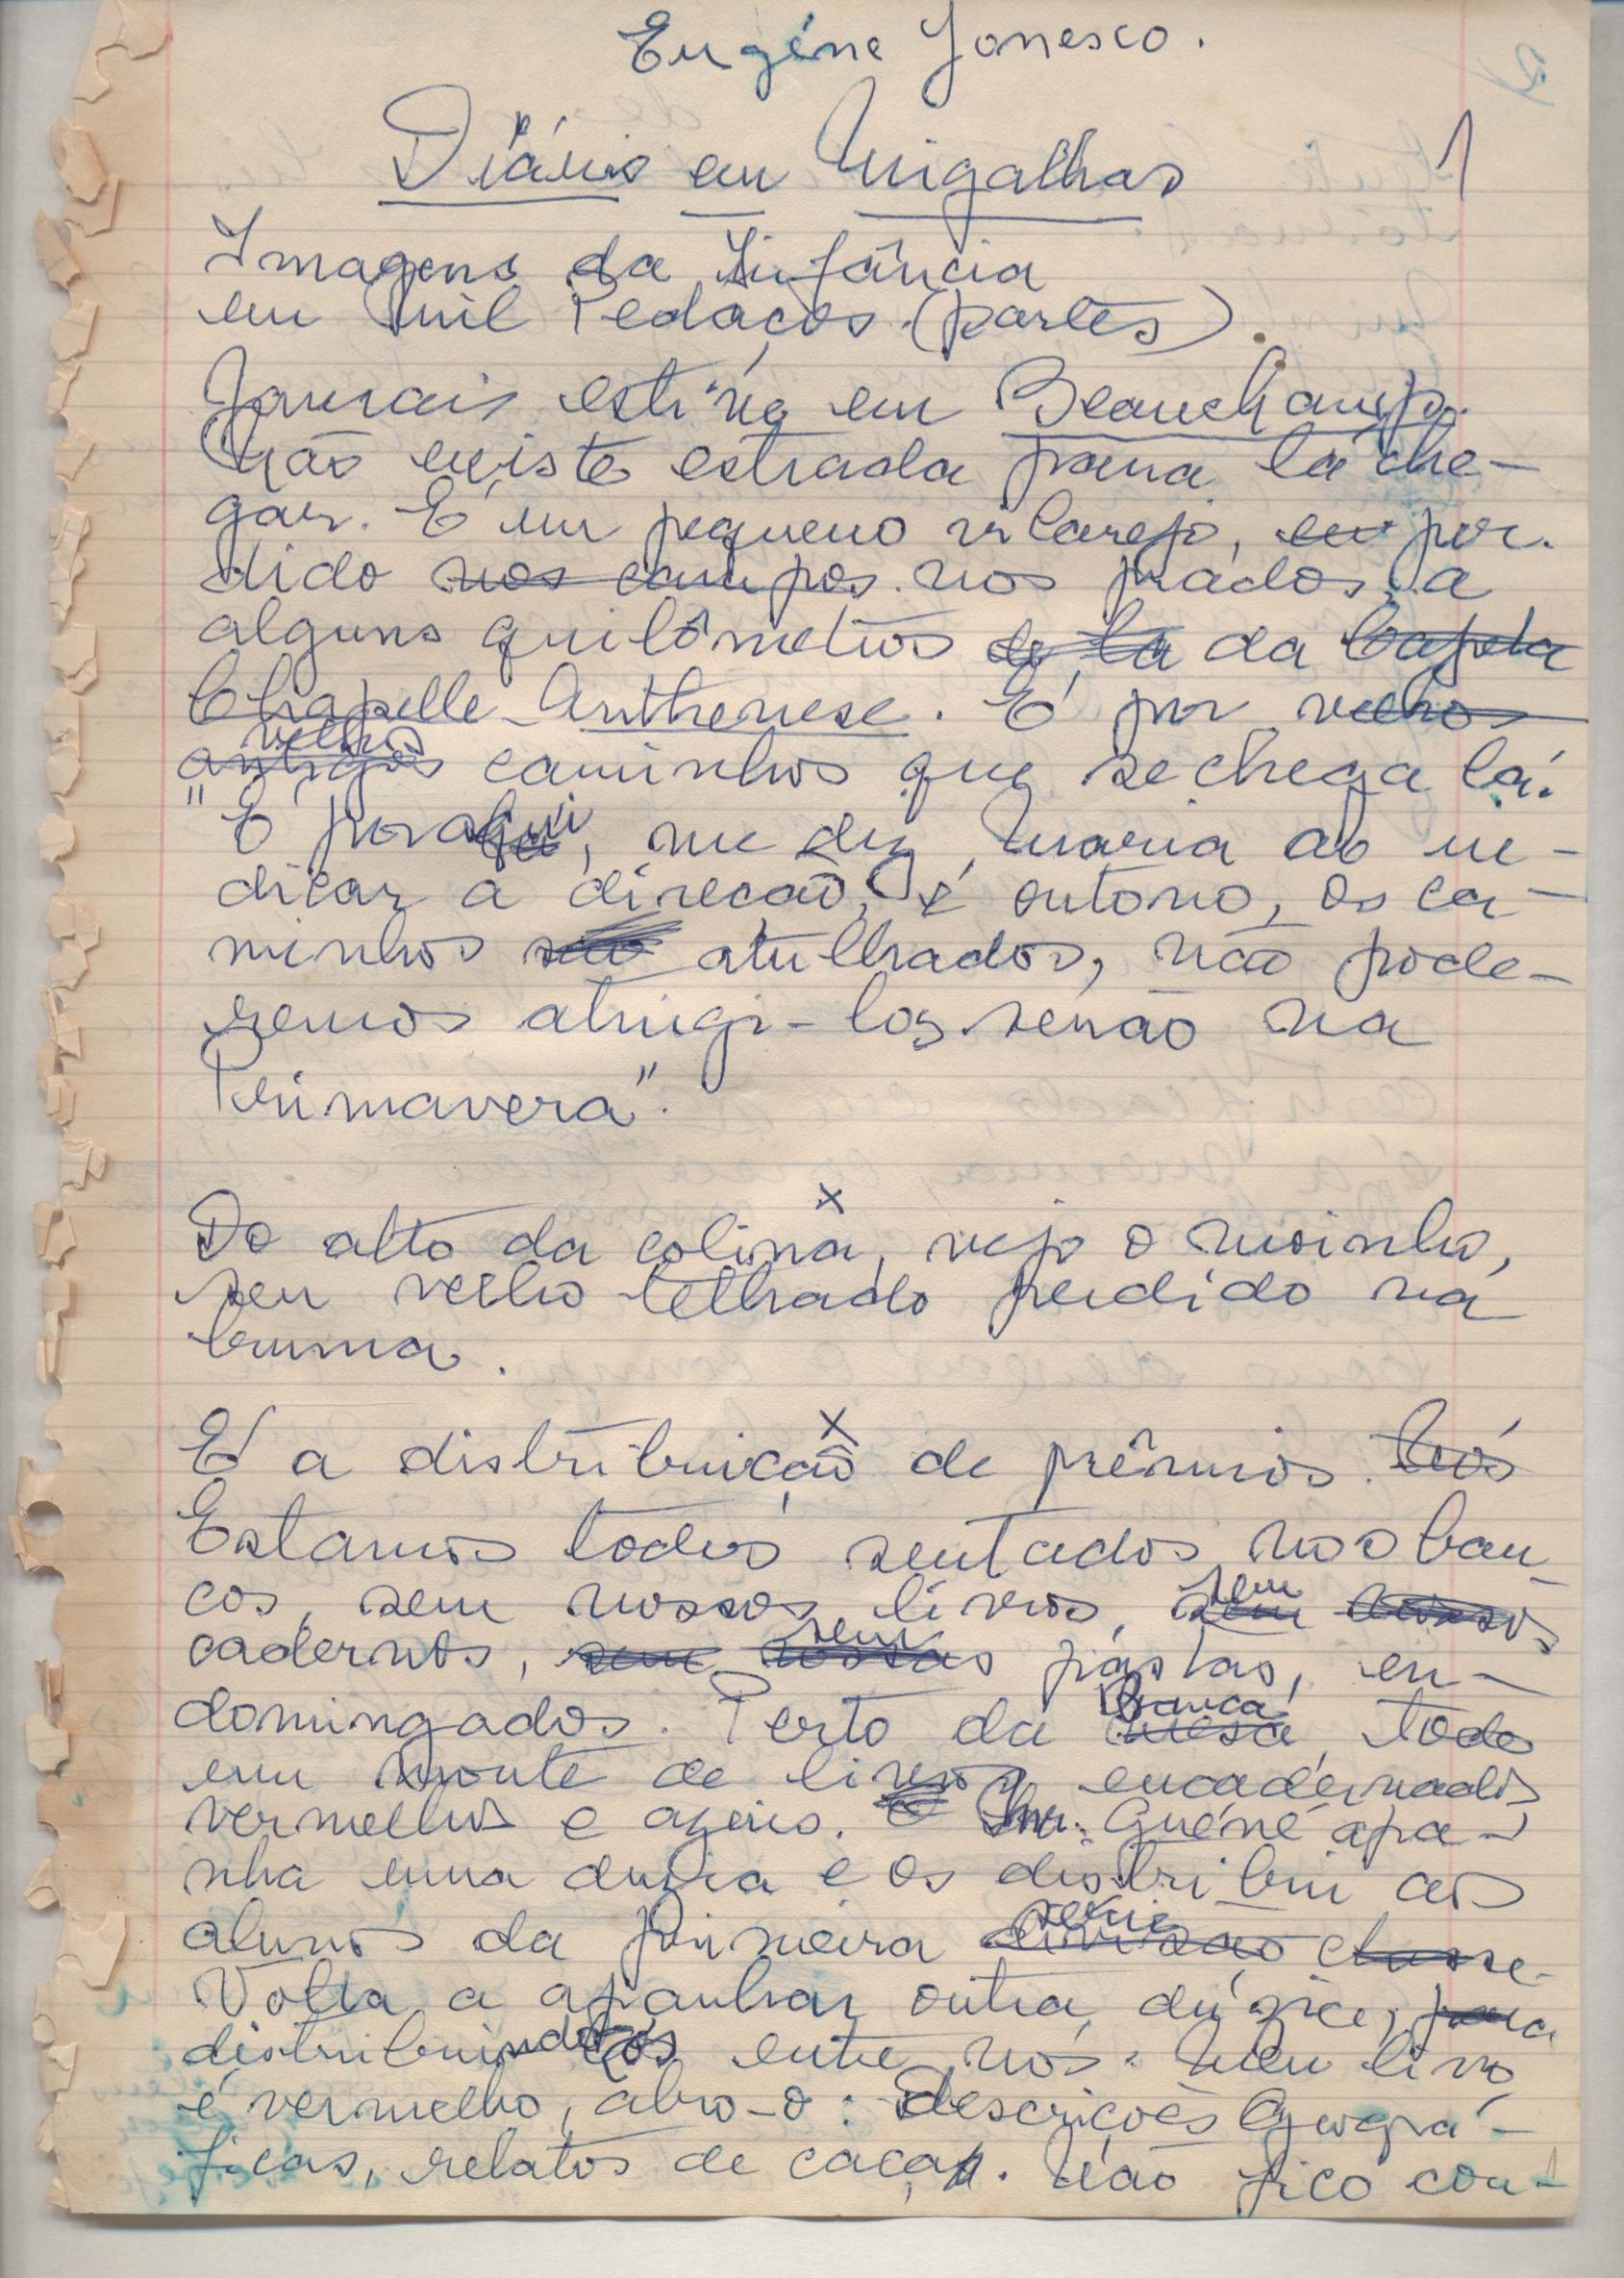 Eugéne Yonesco.
Diário em Migalhas
1
Imagens da Infância
em Mil Pedaços (partes).
Jamais estive em Beauchamp.
Não existe estrada para lá che-
gar. É um pequeno vilarejo, em per-
dido nos campos nos prados, a
alguns quilômetros de la da Capela
Chapelle-Anthenese. É por velhos
velhos
antigos caminhos que se chega lá.
"É por aqui, me diz Maria ao in-
dicar a direcão, é outono, os ca-
minhos são atulhados, não pode-
remos atingi-los senão na
Primavera".
x
Do alto da colina, vejo o moinho,
seu velho telhado perdido na
bruma.
x
É a distribuição de prêmios. Nós
Estamos todos sentados nos ban-
cos, sem nossos livros, sem sem nossos
cadernos, sem nossas sem pastas, en-
domingados. Perto da mesa Banca, todo
um monte de livros encadernados
vermelhos e azuis. O Mr. Guéné apa-
nha uma duzia e os distribui aos
alunos da Primeira divisão série classe.
Volta a apanhar outra dúzia, para
distribuindo-os entre nós. Meu livro
é vermelho, abro-o: Descrições Geográ-
ficas, relatos de caça. Não fico con-